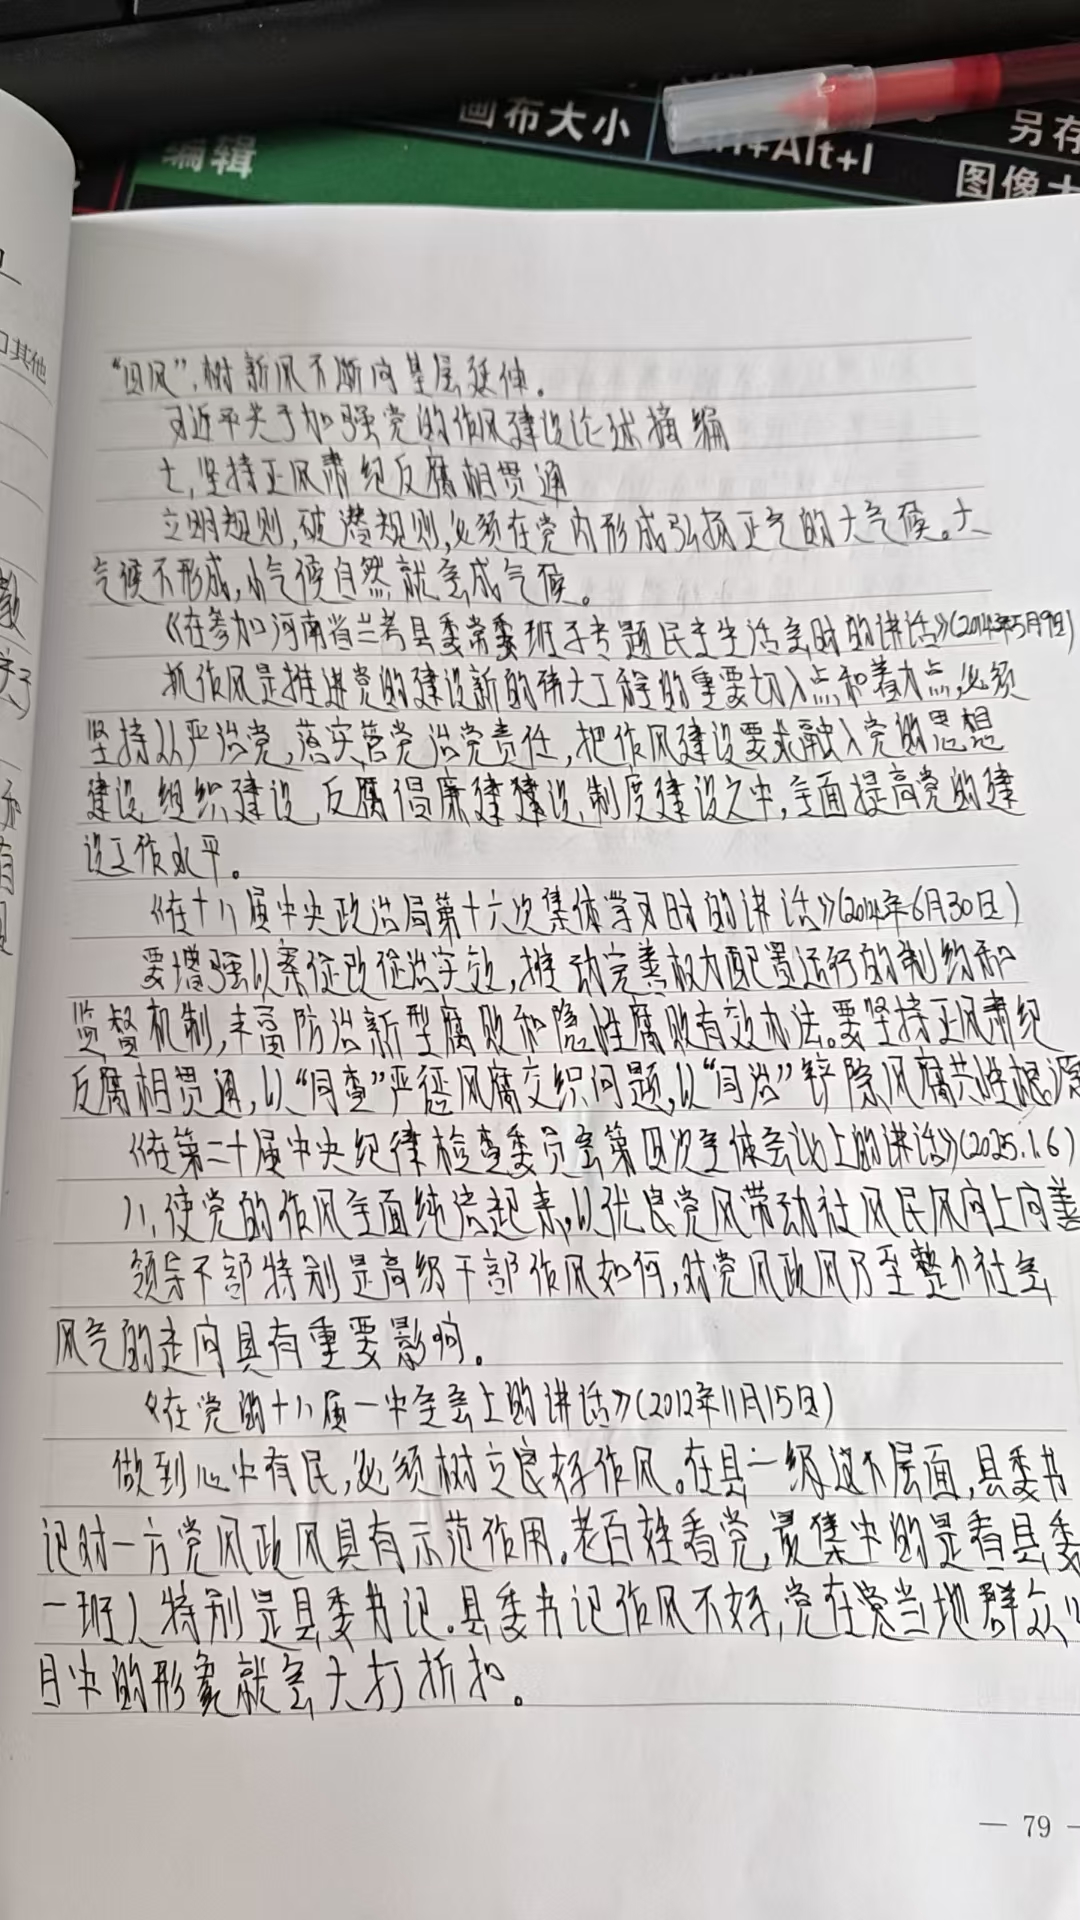 编辑
画布大小
Alt+I
另存
图像大
其他
“四风”,树新风不断向基层延伸。
习近平关于加强党的作风建设论述摘编
七,坚持正风肃纪反腐相贯通
立明规则,破潜规则,必须在党内形成弘扬正气的大气候。大
气候不形成,小气候自然就会成气候。
《在参加河南省兰考县委常委班子专题民主生活会时的讲话》(2014年5月9日)
抓作风是推进党的建设新的伟大工程的重要切入点和着力点,必须
坚持从严治党,落实管党治党责任,把作风建设要求融入党的思想
建设,组织建设,反腐倡廉建建设,制度建设之中,全面提高党的建
设工作水平。
《在十八届中央政治局第十六次集体学习时的讲话》(2014年6月30日)
要增强以案促改促治实效,推动完善权力配置运行的制约和
监督机制,丰富防治新型腐败和隐性腐败有效办法。要坚持正风肃纪
反腐相贯通,以“同查”严惩风腐交织问题,以“同治”铲除风腐共性根源
《在第二十届中央纪律检查委员会第四次全体会议上的讲话》(2025.1.6)
八,使党的作风全面纯洁起来,以优良党风带动社风民风向上向善
领导干部特别是高级干部作风如何,对党风政风乃至整个社会
风气的走向具有重要影响。
《在党的十八届一中全会上的讲话》(2012年11月15日)
做到心中有民,必须树立良好作风。在县一级这个层面,县委书
记对一方党风政风具有示范作用。老百姓看党,最集中的是看县委
一班人特别是县委书记。县委书记作风不好,党在党当地群众心
目中的形象就会大打折扣。
— 79 —